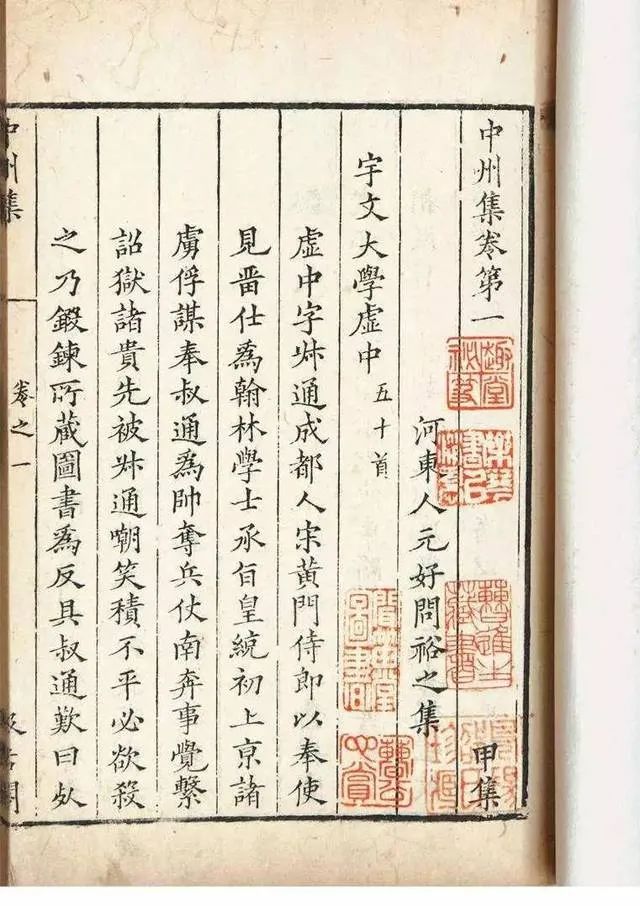 中州集卷第一
甲集
河東人元好問裕之集
宇文大學虛中
五十首
虛中字叔通成都人宋黃門侍郎以奉使
見畱仕爲翰林學士承旨皇統初上京諸
虜俘謀奉叔通爲帥奪兵仗南奔事覺繫
詔獄諸貴先被叔通嘲笑積不平必欲殺
之乃鍛鍊所藏圖書爲反具叔通歎曰死
中州集
卷之一
汲古閣